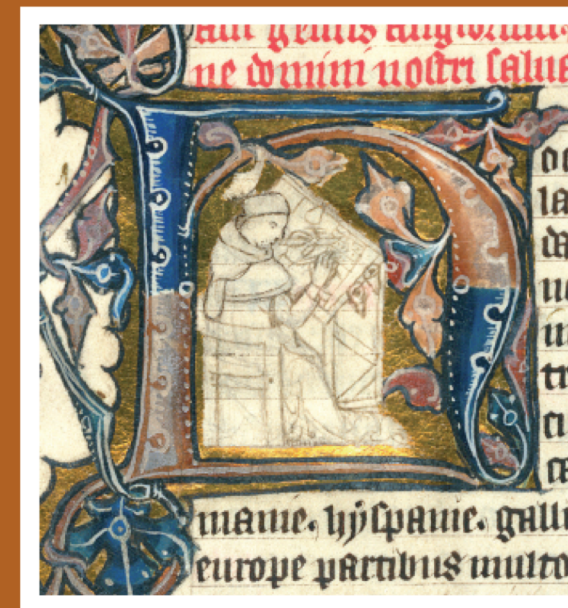 gentis anglorum
ne domini nostri salua
la
tr
ci
manie. hyspanie. galli
europe partibus multo